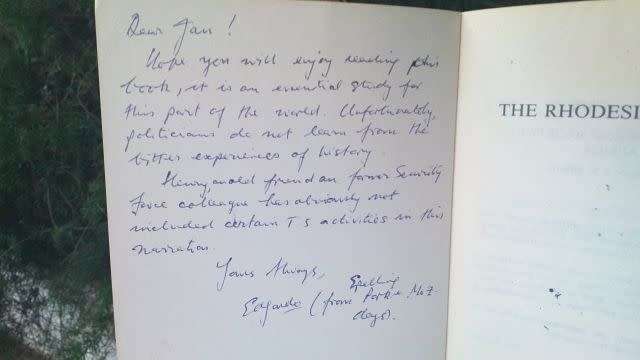 Dear Jan!
Hope you will enjoy reading this
book, it is an essential study for
this part of the world. Unfortunately,
politicians do not learn from the
bitter experiences of history.
Henry an old friend an former Security
Force colleague has obviously not
included certain T S activities in this
narration.
Yours Always,
Edgardo (from Moz-
days).
THE RHODESI